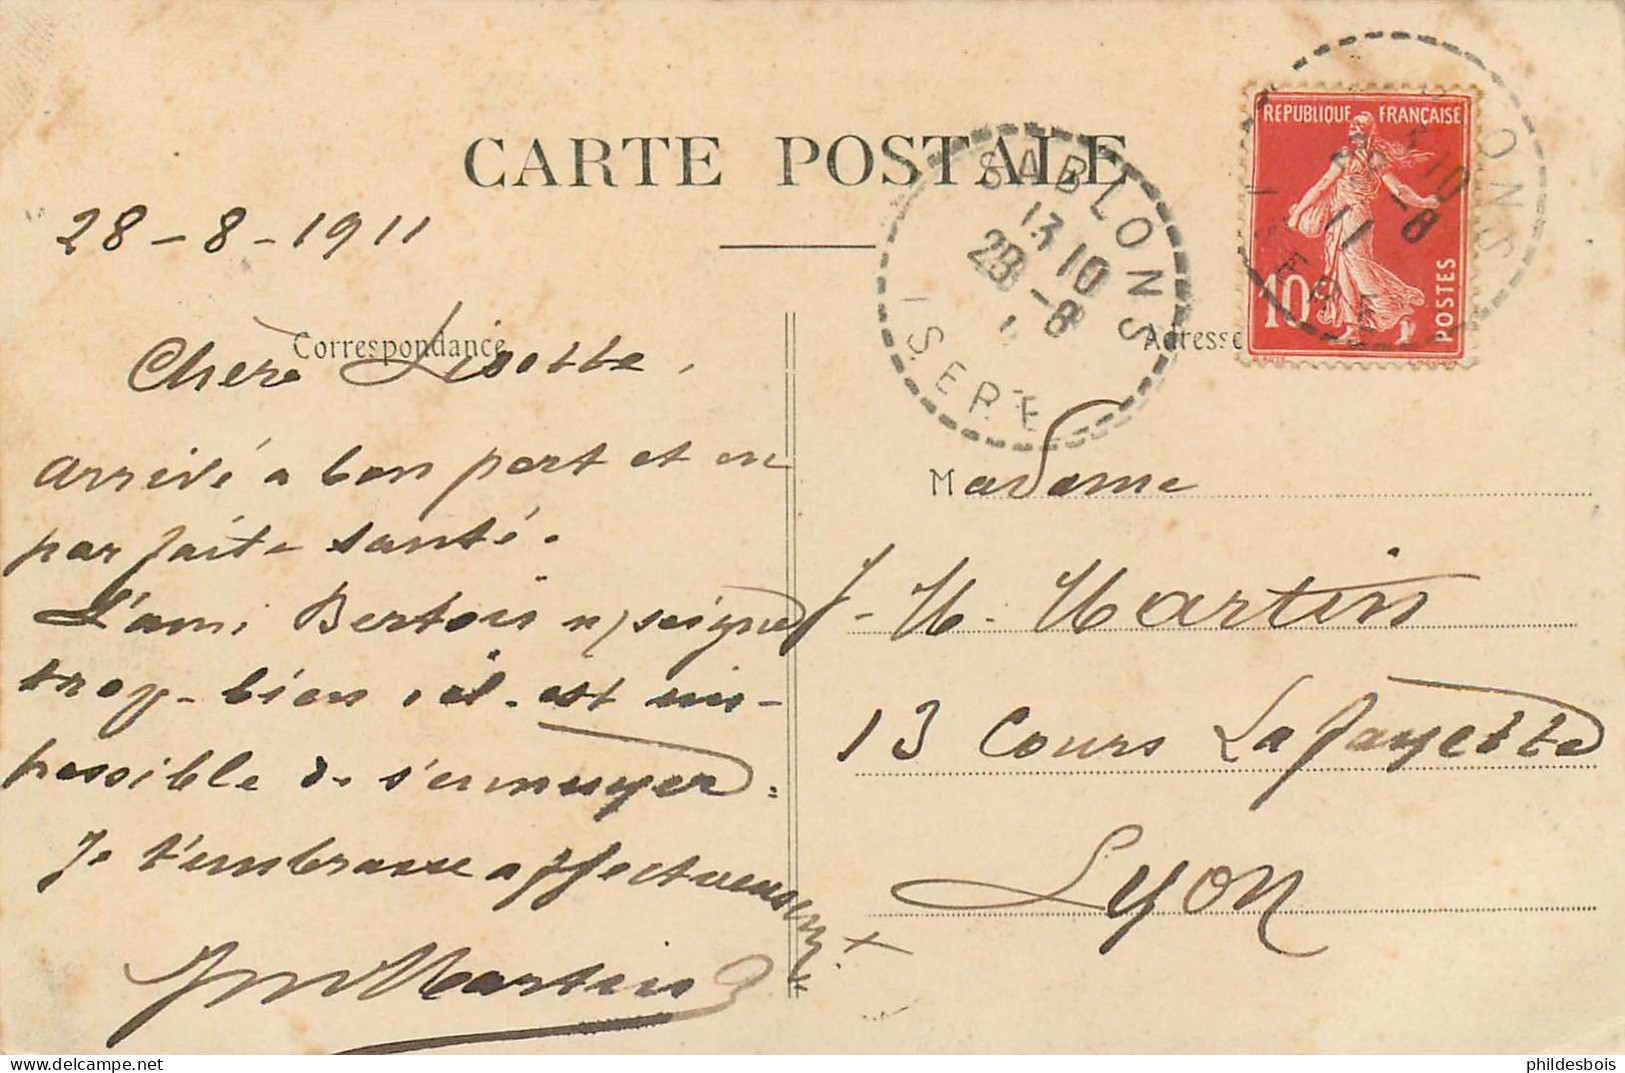 CARTE POSTALE
28-8-1911
Correspondance
Chère Lisette,
arrivé a bon port et en
parfaite santé.
L'ami Bertois n/ soigne
trop bien, il est im-
possible de s'ennuyer.
Je t'embrasse affectueusement
JM Martin
SABLONS
13 10
28 -8
ISERE
REPUBLIQUE FRANÇAISE
10c
POSTES
ONS
10
-8
11
ISERE
Adresse
Madame
J. M. Martin
13 Cours Lafayette
Lyon
phildesbois